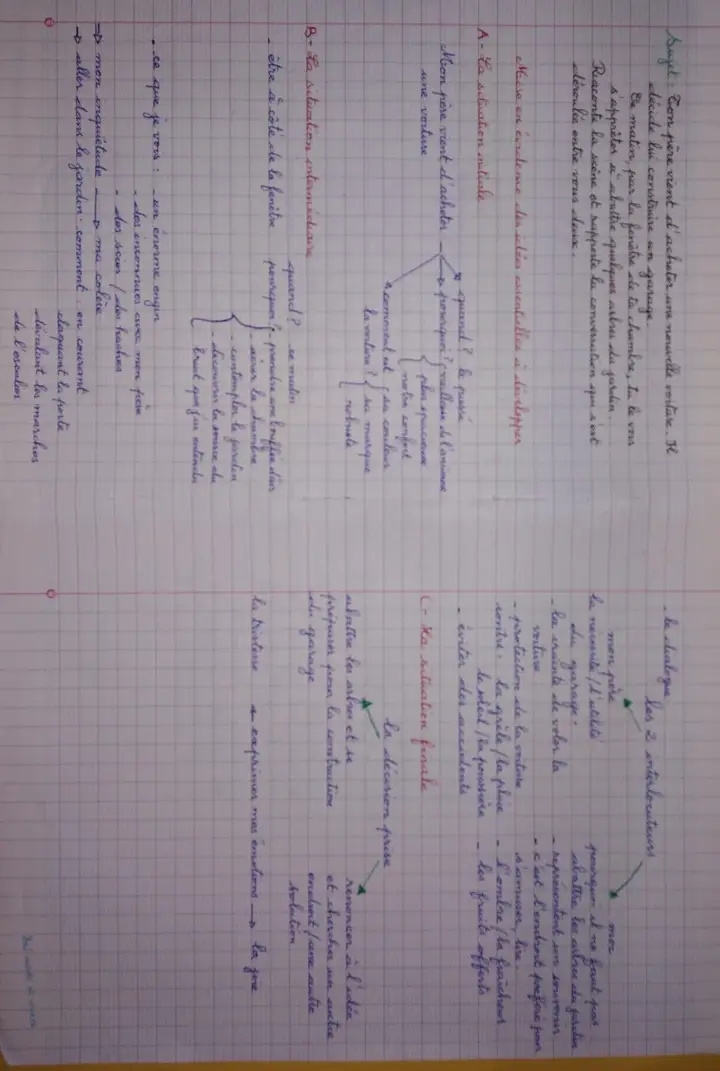 Sujet : Ton père vient d'acheter une nouvelle voiture. Il
décide lui construire un garage.
Ce matin, par la fenêtre de ta chambre, tu le vois
s'apprêter à abattre quelques arbres du jardin.
Raconte la scène et rapporte la conversation qui s'est
déroulée entre vous deux.
Mise en évidence des idées essentielles à développer
A- La situation initiale
Mon père vient d'acheter
une voiture
quand ? le passé
pourquoi ? vieillesse de l'ancienne
plus spacieuse
notre confort
comment est
la voiture ?
sa couleur
sa marque
robuste
B- La situation intermédiaire
quand ? ce matin
- être à côté de la fenêtre
pourquoi ? - prendre une bouffée d'air
- aérer la chambre
- contempler le jardin
- découvrir la source du
bruit que j'ai entendu
- ce que je vois : - un énorme engin
- des inconnus avec mon père
- des scies / des haches
⇒ mon inquiétude → ma colère
→ aller dans le jardin : comment : en courant
claquant la porte
dévalant les marches
de l'escalier
- le dialogue
les 2 interlocuteurs
mon père
la nécessité / l'utilité
du garage :
- la crainte de voler la
voiture
- protection de la voiture
contre : la grêle / la pluie
le soleil / la poussière
- éviter des accidents
moi
pourquoi il ne faut pas
abattre les arbres du jardin
- représentent un souvenir
- c'est l'endroit préféré pour
s'amuser, lire
- l'ombre / la fraîcheur
- les fruits offerts
C- La situation finale
la décision prise
abattre les arbres et se
préparer pour la construction
du garage
renoncer à l'idée
et chercher un autre
endroit / une autre
solution
la tristesse ← exprimer mes émotions → la joie